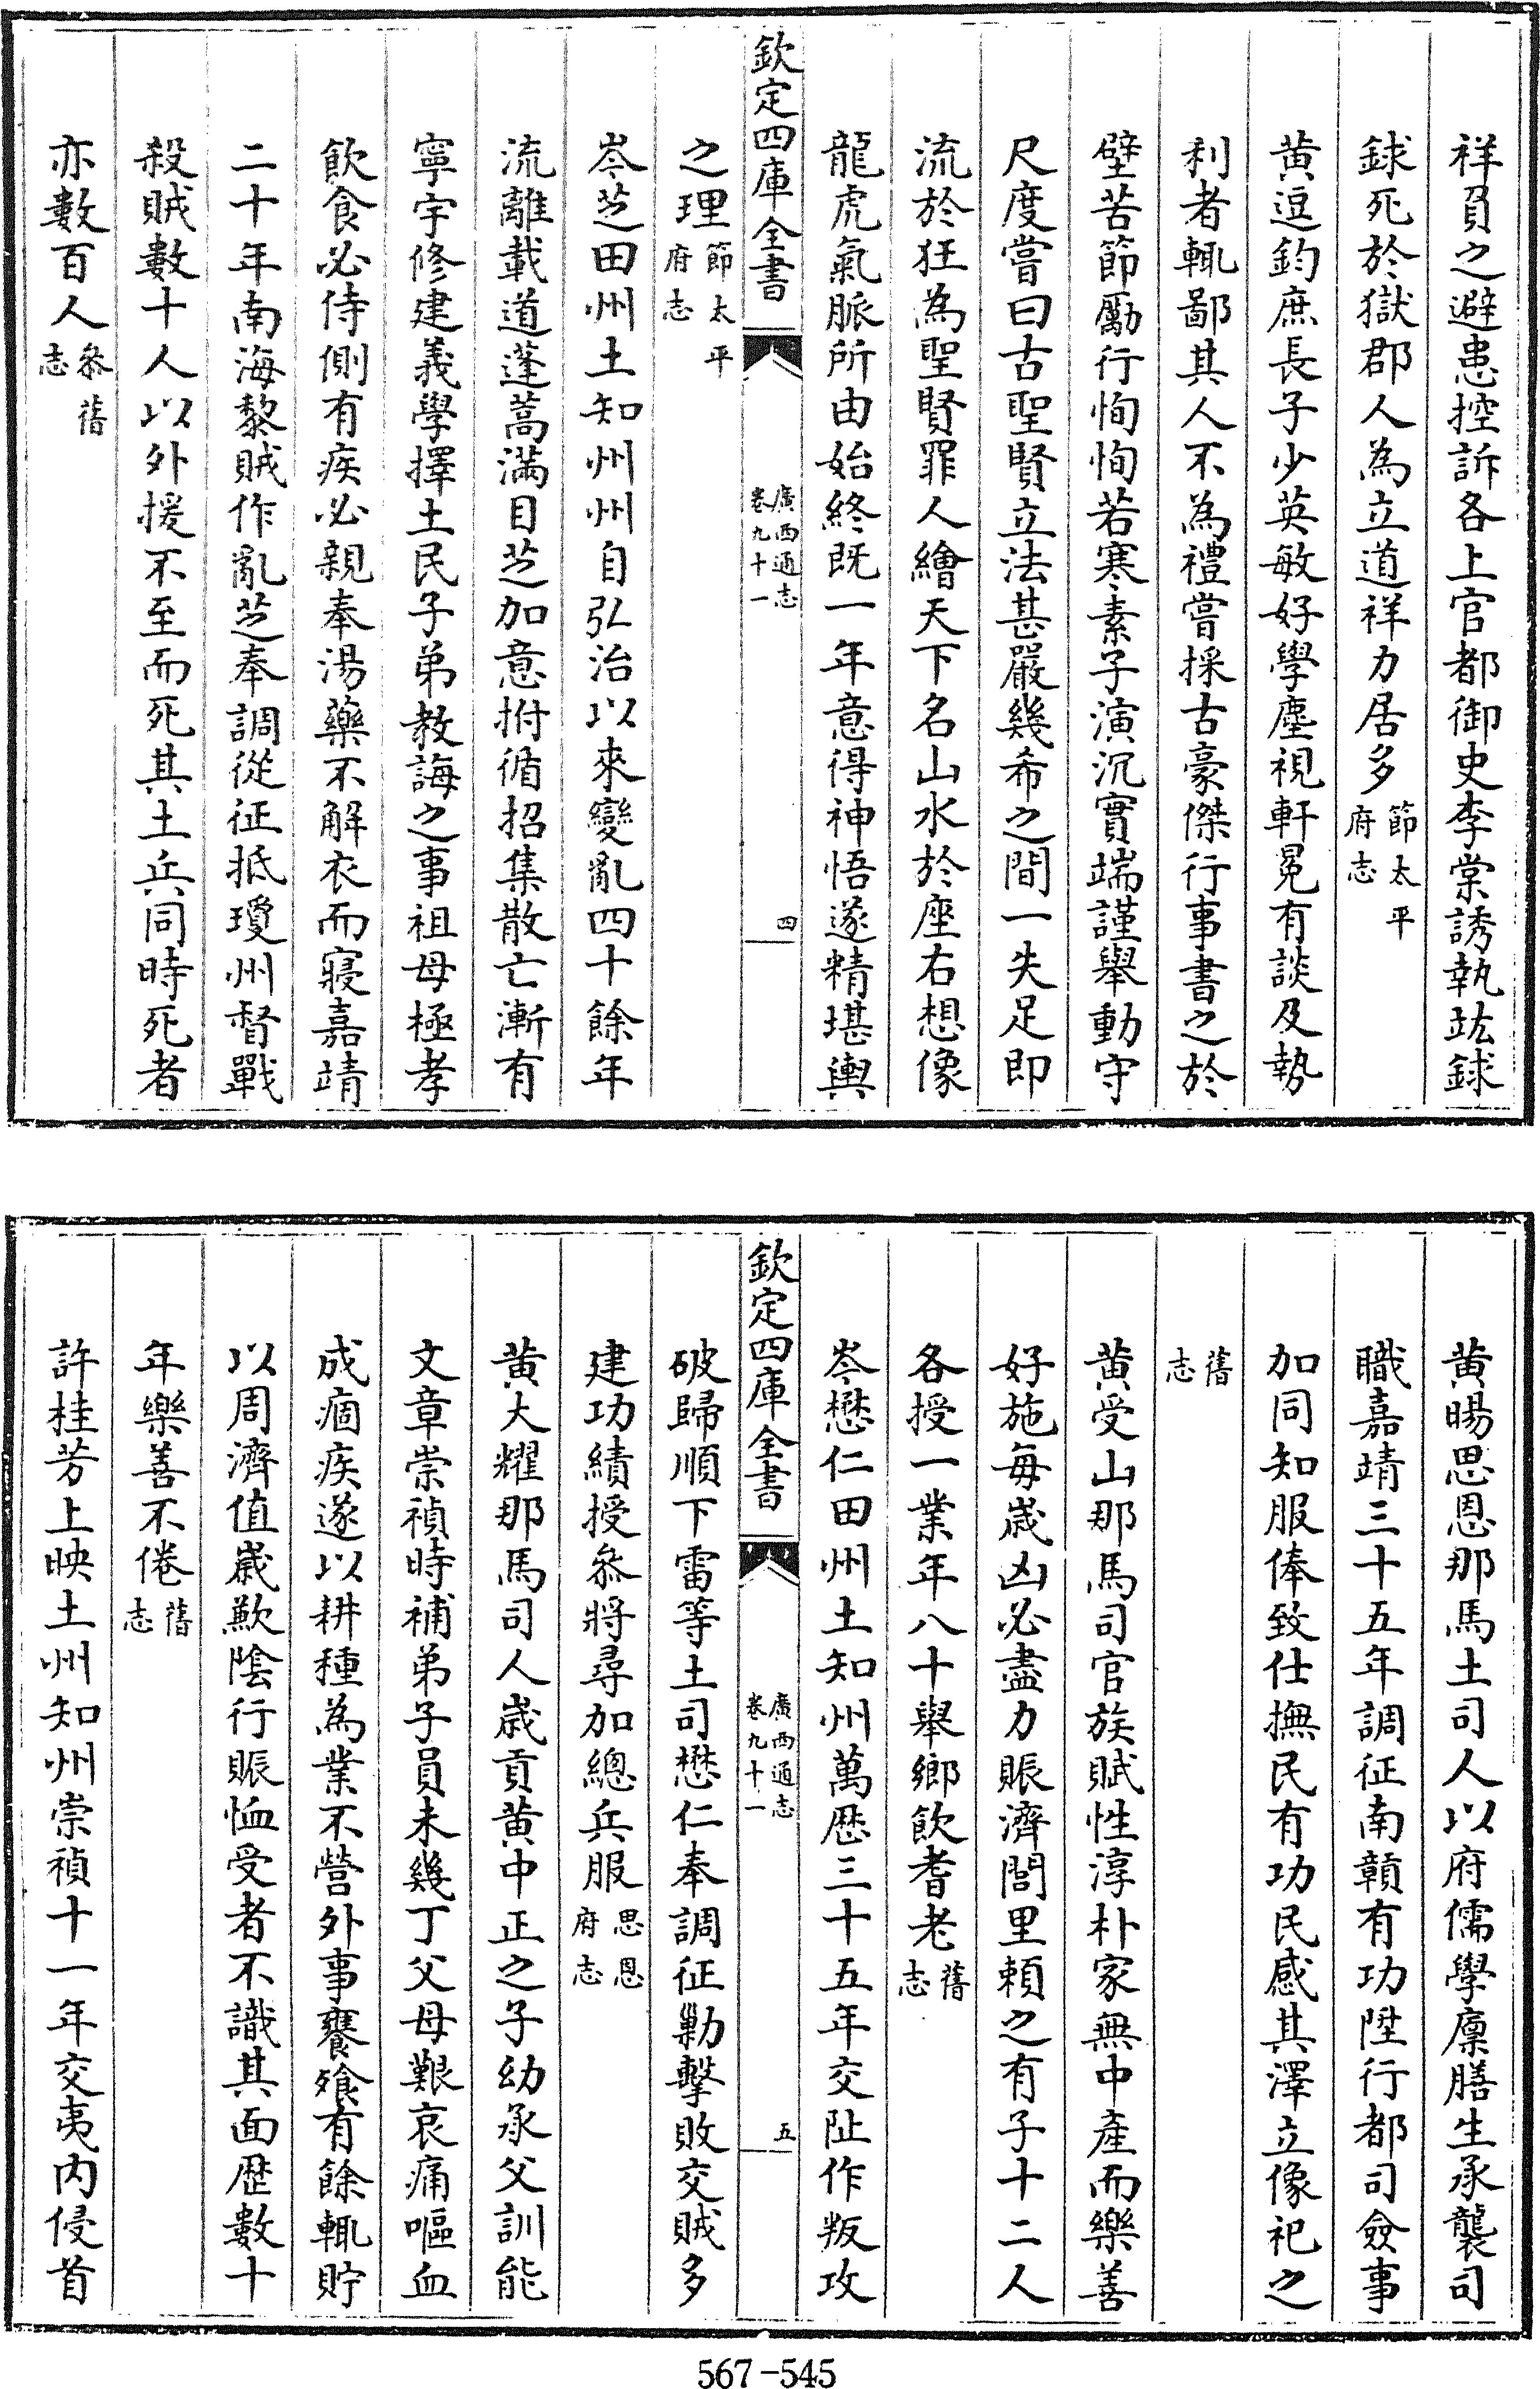 祥負之避患控訴各上官都御史李棠誘執竑銾
銾死於獄郡人為立道祥力居多節太平府志
黄逗鈞庶長子少英敏好學塵視軒冕有談及勢
利者輒鄙其人不為禮嘗採古豪傑行事書之於
壁苦節勵行恂恂若寒素子演沉實端謹舉動守
尺度嘗曰古聖賢立法甚嚴幾希之間一失足即
流於狂為聖賢罪人繪天下名山水於座右想像
龍虎氣脈所由始終既一年意得神悟遂精堪輿
欽定四庫全書
廣西通志
卷九十一
四
之理節太平府志
岑芝田州土知州州自弘治以來變亂四十餘年
流離載道蓬蒿滿目芝加意拊循招集散亡漸有
寧宇修建義學擇土民子弟教誨之事祖母極孝
飲食必侍側有疾必親奉湯藥不解衣而寢嘉靖
二十年南海黎賊作亂芝奉調從征抵瓊州督戰
殺賊數十人以外援不至而死其土兵同時死者
亦數百人叅舊志
黄暘思恩那馬土司人以府儒學廪膳生承襲司
職嘉靖三十五年調征南贛有功陞行都司僉事
加同知服俸致仕撫民有功民感其澤立像祀之
舊志
黄受山那馬司官族賦性淳朴家無中產而樂善
好施每歲凶必盡力賑濟閭里頼之有子十二人
各授一業年八十舉鄉飲耆老舊志
岑懋仁田州土知州萬厯三十五年交阯作叛攻
欽定四庫全書
廣西通志
卷九十一
五
破歸順下雷等土司懋仁奉調征勦擊敗交賊多
建功績授叅將尋加總兵服思恩府志
黄大耀那馬司人歲貢黄中正之子幼承父訓能
文章崇禎時補弟子員未幾丁父母艱哀痛嘔血
成痼疾遂以耕種為業不營外事饔飱有餘輒貯
以周濟值歲歉陰行賑恤受者不識其面歴數十
年樂善不倦舊志
許桂芳上映土州知州崇禎十一年交夷内侵首
567-545